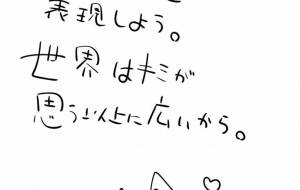 表現しよう。
世界はキミが
思う以上に広いから。